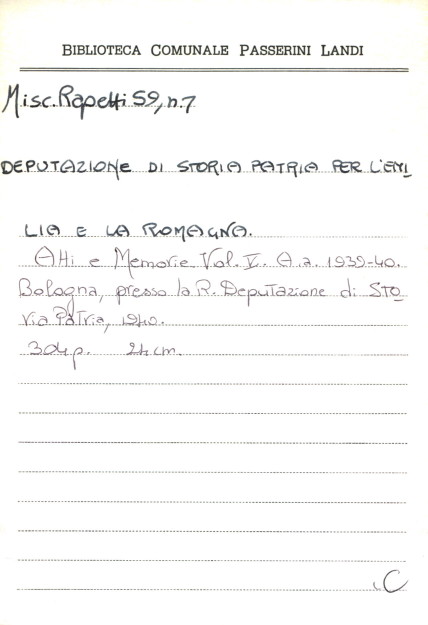 BIBLIOTECA COMUNALE PASSERINI LANDI
Misc. Rapetti 59, n. 7
DEPUTAZIONE DI STORIA PATRIA PER L'EMI
LIA E LA ROMAGNA.
Atti e Memorie Vol. V. A.a. 1939-40.
Bologna, presso la R. Deputazione di STO
ria Patria, 1940.
304 p. 24 cm.
C